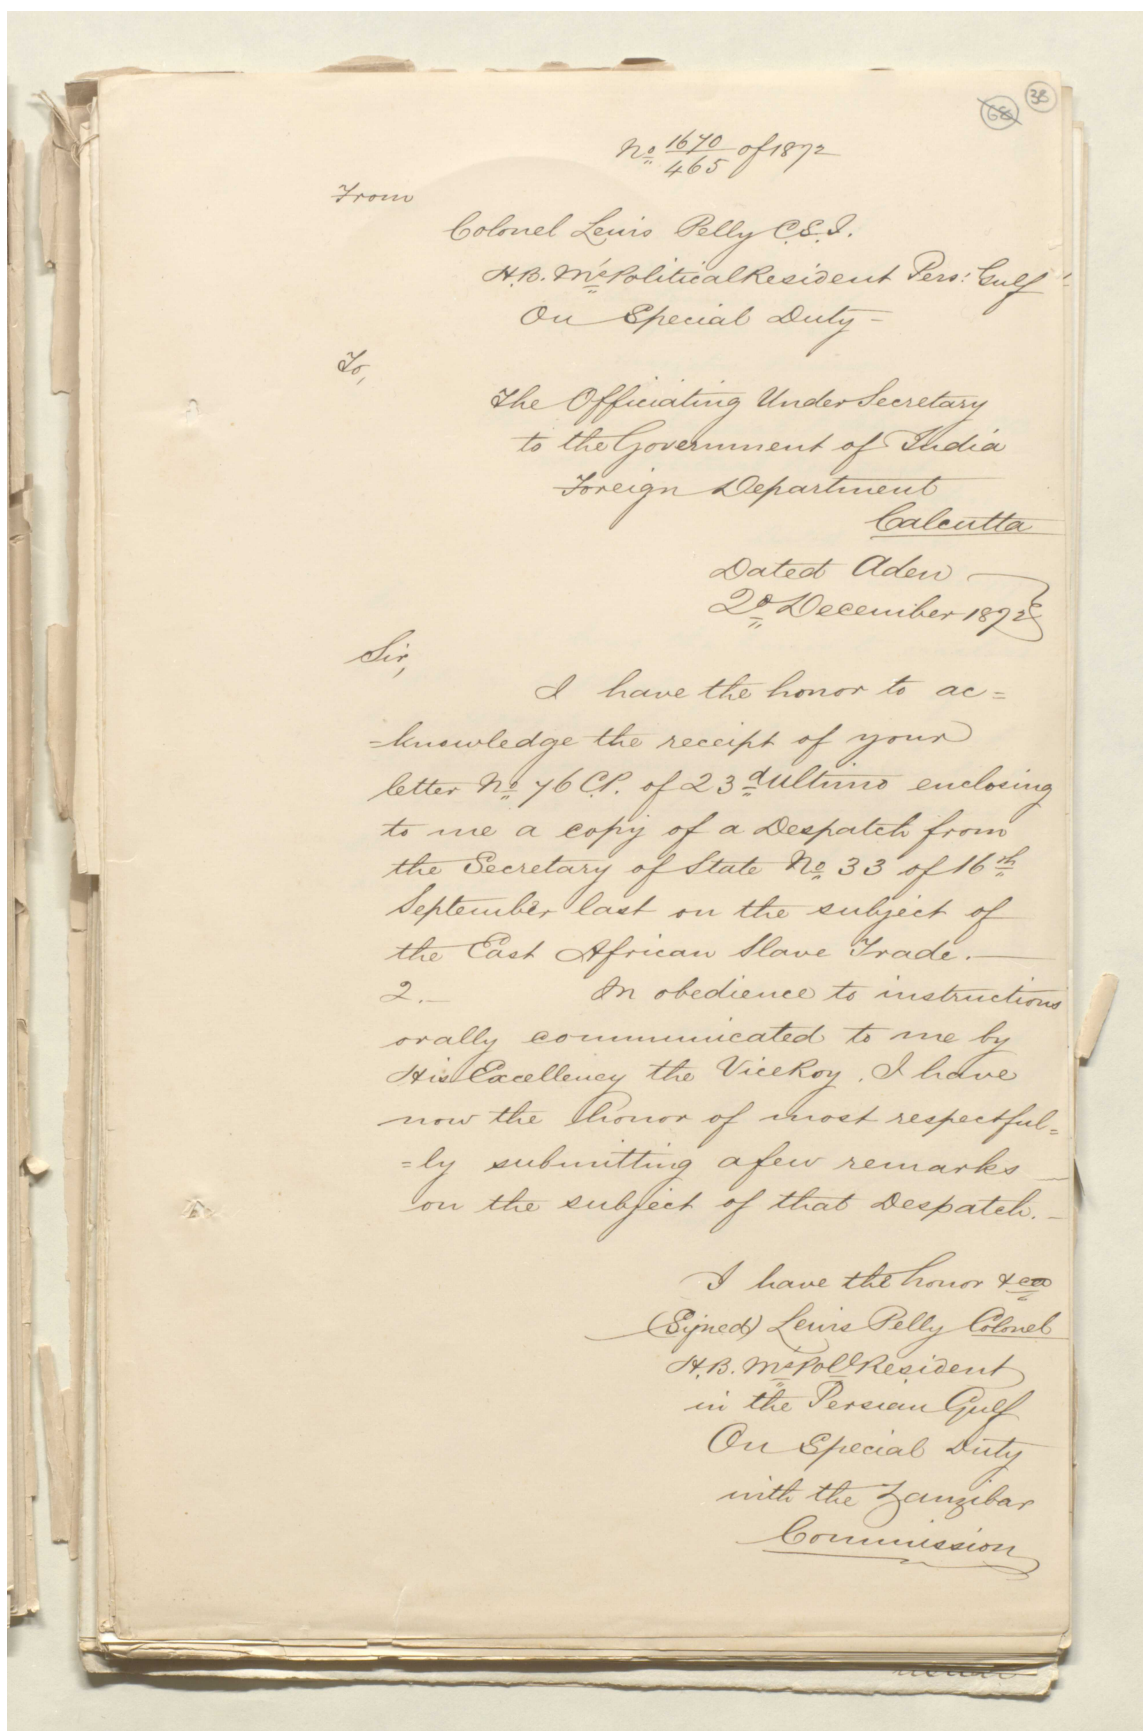 38
68
No 1670/465 of 1872
From
Colonel Lewis Pelly C.S.I.
H.B. Ms Political Resident Pers: Gulf
On Special Duty -
To,
The Officiating Under Secretary
to the Government of India
Foreign Department
Calcutta
Dated Aden
2d December 1872
Sir,
I have the honor to ac=
=knowledge the receipt of your
letter No 76 C.P. of 23d Ultimo enclosing
to me a copy of a Despatch from
the Secretary of State No 33 of 16th
September last on the subject of
the East African Slave Trade.—
2.— In obedience to instructions
orally communicated to me by
His Excellency the ViceRoy. I have
now the honor of most respectful=
=ly submitting a few remarks
on the subject of that Despatch.—
I have the honor &ca
(Signed) Lewis Pelly Colonel
H.B. Ms Poll Resident
in the Persian Gulf
On Special Duty
with the Zanzibar
Commission